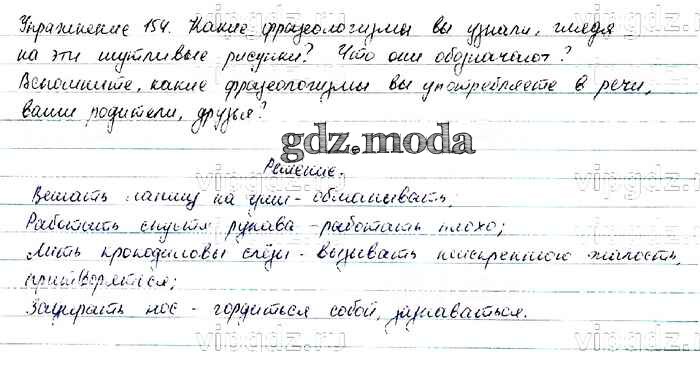 Упражнение 154. Какие фразеологизмы вы узнали, глядя
на эти шутливые рисунки? Что они обозначают?
Вспомните, какие фразеологизмы вы употребляете в речи,
ваши родители, друзья?
gdz.moda
Решение.
Вешать лапшу на уши - обманывать;
Работать спустя рукава - работать плохо;
Лить крокодиловы слёзы - вызывать неискреннюю жалость,
притворяться;
Задирать нос - гордиться собой, зазнаваться.
vipgdz.ru